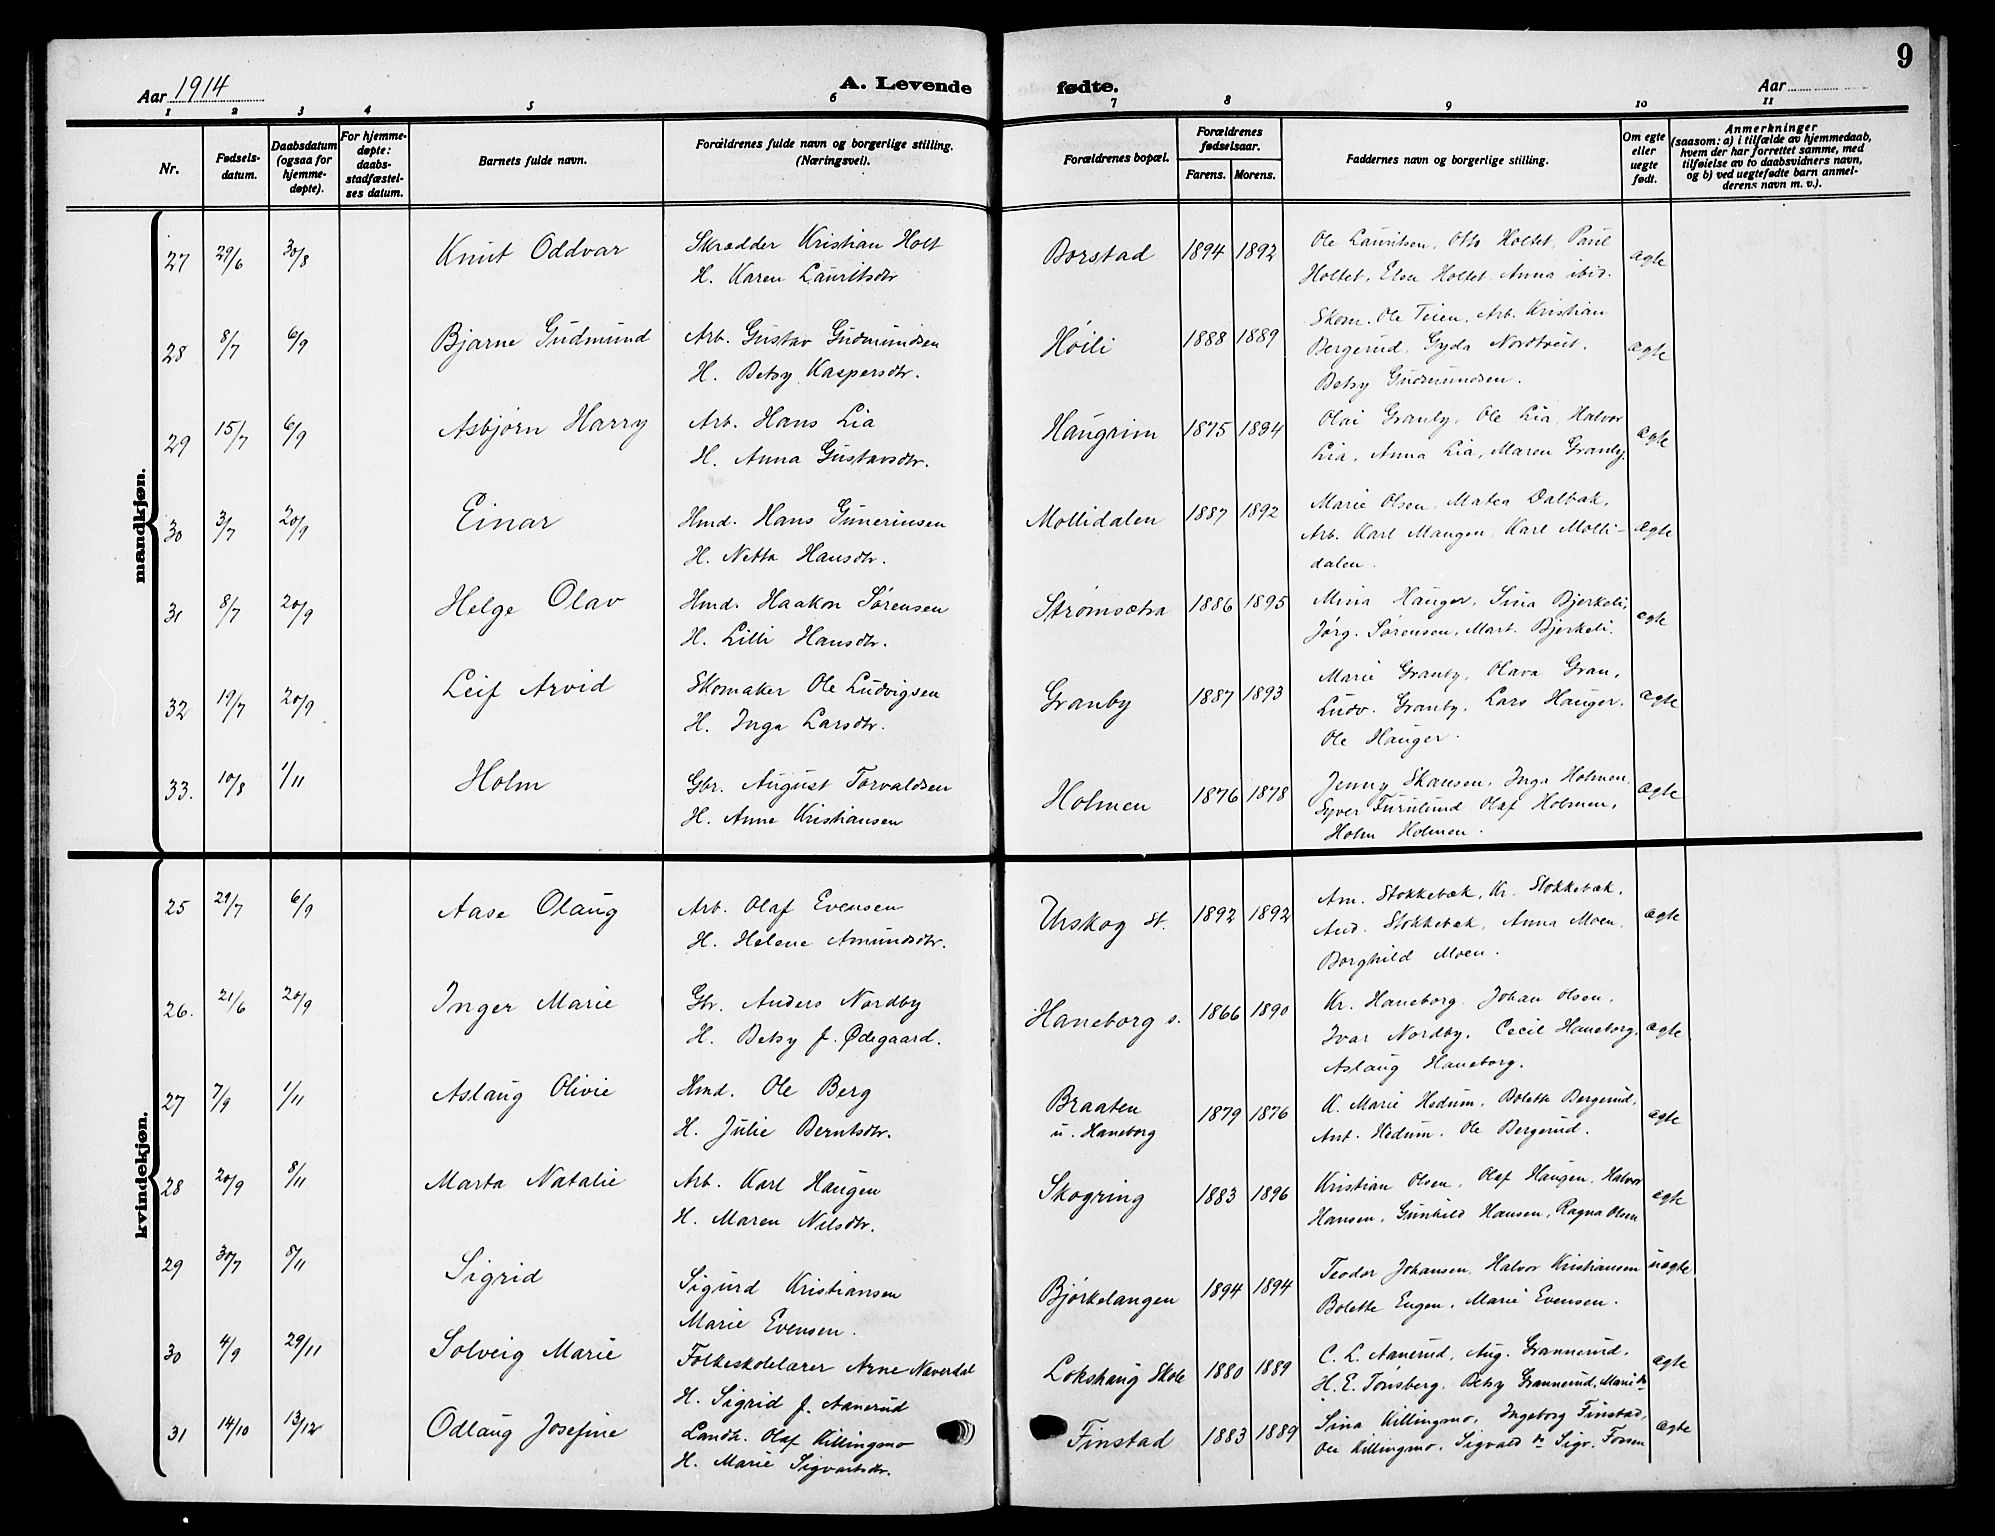 9
Aar 1914
A. Levende fødte.
Aar
1 2 3 4 5 6 7 8 9 10 11
Nr.
Fødsels-
datum.
Daabsdatum
(ogsaa for
hjemme-
døpte).
For hjemme-
døpte:
daabs-
stadfæstel-
ses datum.
Barnets fulde navn.
Forældrenes fulde navn og borgerlige stilling.
(Næringsvei).
Forældrenes bopæl.
Forældrenes
fødselsaar.
Farens. Morens.
Faddernes navn og borgerlige stilling.
Om egte
eller
uegte
født.
Anmerkninger
(saasom: a) i tilfælde av hjemmedaab,
hvem der har forrettet samme, med
tilføielse av to daabsvidners navn,
og b) ved uegtefødte barn anmel-
derens navn m. v.).
mandkjøn.
27 29/6 30/8 Knut Oddvar Skrædder Kristian Holt Borstad 1894 1892 Ole Lauritsen, Otto Holtet, Paul ægte
H. Karen Lauritsdtr Holtet, Else Holtet, Anna ibid.
28 8/7 6/9 Bjarne Gudmund Arb. Gustav Gudmundsen Høili 1888 1889 Skom. Ole Teien, Arb. Kristian ægte
H. Betsy Kaspersdtr. Bergerud, Gyda Nordtveit,
Betsy Gudmundsen.
29 15/7 6/9 Asbjørn Harry Arb. Hans Lia Haugrim 1875 1894 Olai Granby, Ole Lia, Halvor ægte
H. Anna Gustavsdtr. Lia, Anna Lia, Maren Granby.
30 3/7 20/9 Einar Hmd. Hans Gunerinsen Mollidalen 1887 1892 Marie Olsen, Matea Dalbak, ægte
H. Netta Hansdtr. Arb. Karl Mangen, Karl Molli-
dalen.
31 8/7 20/9 Helge Olav Hmd. Haakon Sørensen Strømsætra 1886 1895 Mina Hauger, Sina Bjerkeli, ægte
H. Lilli Hansdtr. Jørg. Sørensen, Mart. Bjerkeli.
32 19/7 20/9 Leif Arvid Skomaker Ole Ludvigsen Granby 1887 1893 Marie Granby, Olava Gran, ægte
H. Inga Larsdtr. Ludv. Granby, Lars Hauger,
Ole Hauger.
33. 10/8 1/11 Holm Gbr. August Torvaldsen Holmen 1876 1878 Jenny Skansen, Inga Holmen, ægte
H. Anne Kristiansen Syver Furulund Olaf Holmen,
Holm Holmen.
kvindekjøn.
25 29/7 6/9 Aase Olaug Arb. Olaf Evensen Urskog st. 1892 1892 Am. Stokkebæk, Kr. Stokkebæk, ægte
H. Helene Amundsdtr. And. Stokkebæk, Anna Moen,
Borghild Moen.
26. 21/6 20/9 Inger Marie Gbr. Anders Nordby Haneborg s. 1866 1890 Kr. Haneborg, Johan Olsen, ægte
H. Betsy f. Ødegaard. Ivar Nordby, Cecil Haneborg,
Aslaug Haneborg.
27 7/9 1/11 Aslaug Olivie Hmd. Ole Berg Braaten 1879 1876 K. Marie Hedum, Bolette Bergerud, ægte
H. Julie Berntsdtr. u. Haneborg Ant. Hedum, Ole Bergerud.
28 20/9 8/11 Marta Natalie Arb. Karl Haugen Skogring 1883 1896 Kristian Olsen, Olaf Haugen, Halvor ægte
H. Maren Nilsdtr. Hansen, Gunhild Hansen, Ragna Olsen
29 30/7 8/11 Sigrid Sigurd Kristiansen Bjørkelangen 1894 1894 Teodor Johansen, Halvor Kristiansen uægte
Marie Evensen. Bolette Engen, Marie Evensen.
30 4/9 29/11 Solveig Marie Folkeskolelærer Arne Naverdal Lokshaug Skole 1880 1889 C. L. Aanerud, Aug. Grannerud, ægte
H. Sigrid f. Aanerud H. E. Tønsberg, Betsy Grannerud, Marie
31 14/10 13/12 Odlaug Josefine Landh. Olaf Killingmo Finstad 1883 1889 Sina Killingmo, Ingeborg Finstad, ægte
H. Marie Sigvartsdtr. Ole Killingmo, Sigvald Sigv. Fossen